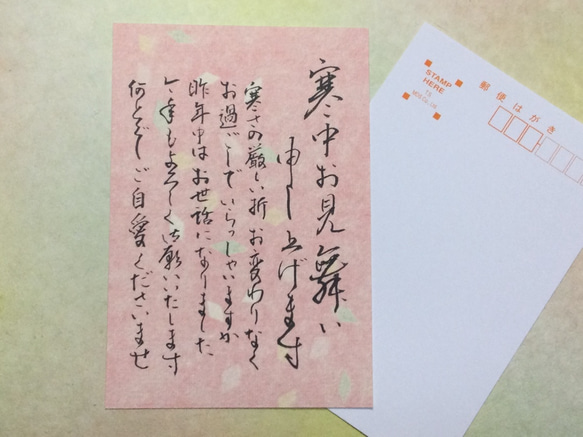 寒中お見舞い
申し上げます
寒さの厳しい折 お変わりなく
お過ごしでいらっしゃいますか
昨年中はお世話になりました
今年もよろしく御願いいたします
何とぞご自愛くださいませ
郵便はがき
STAMP
HERE